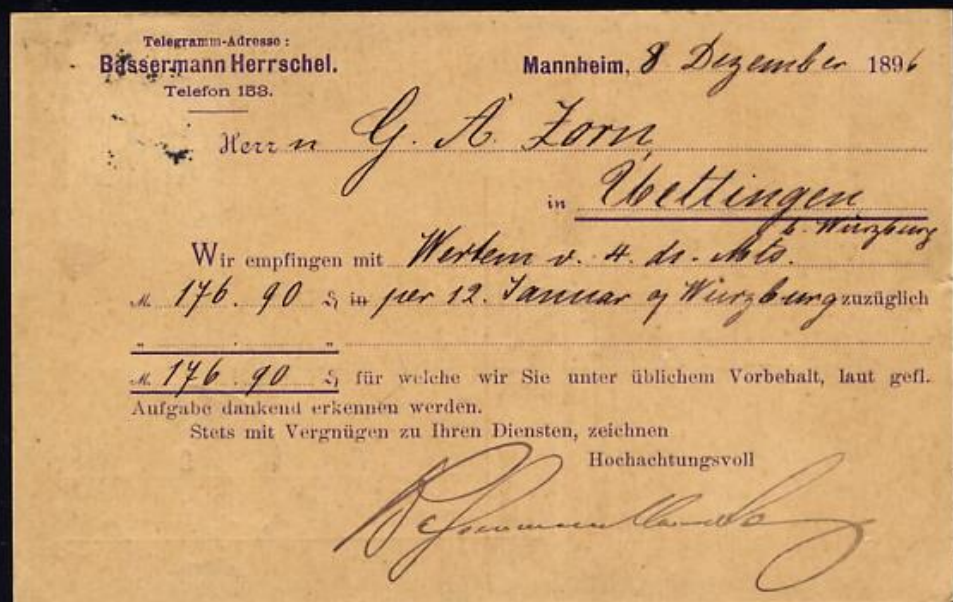 Telegramm-Adresse:
Bassermann Herrschel.
Telefon 153.
Mannheim, 8 Dezember 1896
Herrn G. A. Zorn,
in Uettingen
b. Würzburg
Wir empfingen mit Wertem v. 4. ds. Mts.
M. 176.90 ₰ in per 12. Januar Würzburg zuzüglich
" . "
M. 176.90 ₰ für welche wir Sie unter üblichem Vorbehalt, laut gefl.
Aufgabe dankend erkennen werden.
Stets mit Vergnügen zu Ihren Diensten, zeichnen
Hochachtungsvoll